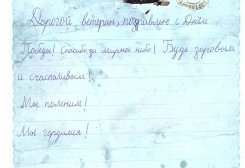 Дорогой ветеран, поздравляю с Днём
Победы! Спасибо за мирное небо! Будь здоровым
и счастливым!
Мы помним!
Мы гордимся!